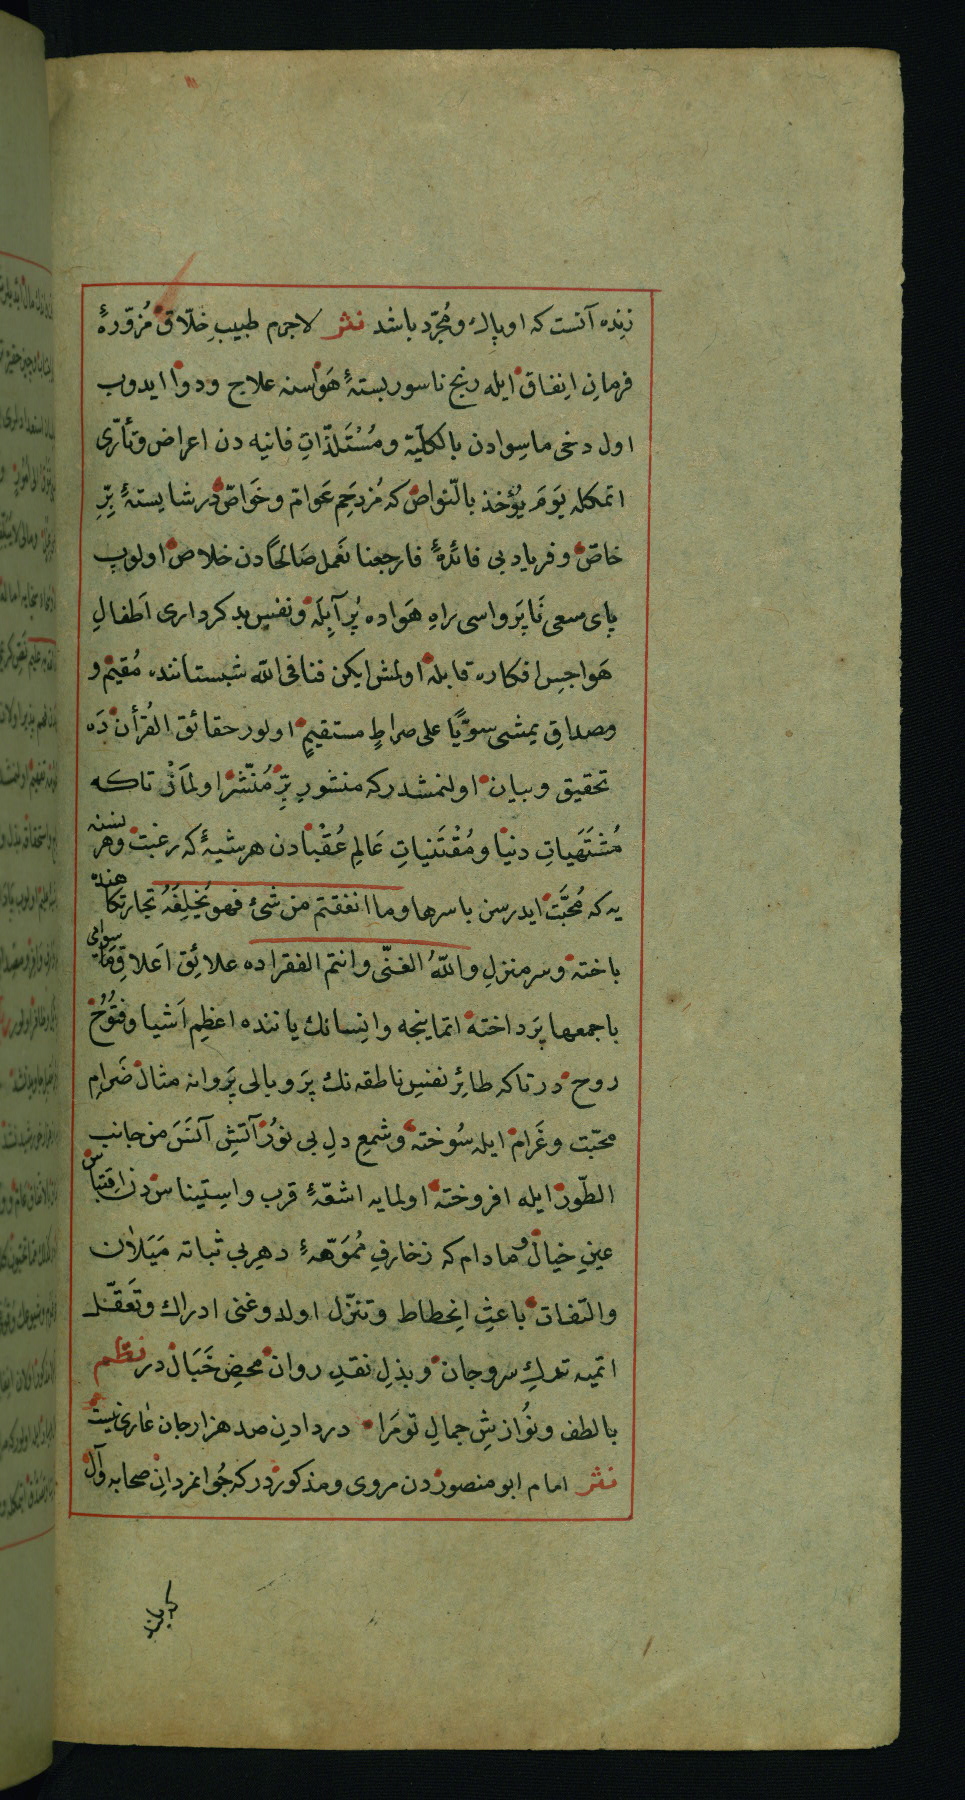 زنده آنست که او پاك و مُجرّد باشد نثر لاجرم طبیبِ خلّاق مُزوّرۀ
فرمانِ اِنفاق ایله رنج ناسور بستۀ هَواسنه علاج و دوا ایدوب
اول دخی ماسِوادن بالکلّیة و مُسْتَلذّاتِ فانیه دن اعراض و تأرّی
اتمکله یَومَ یُؤخذ بالنّواص که مُزدحِم عَوامّ و خَواصّ در شایستۀ بِرِّ
خاصّ و فریاد بی فائدۀ فارجعنا نَعمل صَالحًا دن خلاص اولوب
پای سعی نَاپَرواسی راهِ هَواده پُر آبِلَه و نفسِ بد کرداری اَطفالِ
هَواجسِ افکاره قابله اولمش ایکن فنا فی الله شبستاننده مُقیم و
مصداقِ یمشی سوّیًا علی صراطٍ مستقیمٍ اولور حقائق القُرأن دَه
تحقیق و بیان اولنمشدر که منشورِ بِرّ مُنتّشر اولمَاز تاکه
مُشتَهَیاتِ دنیا و مُقْتَنیاتِ عَالِمِ عُقْبادن هر شیۀ که رغبت و هر نسنه
یه که مُحبَّت ایدرسن باسرها وما انفقتم من شئ فهو یُخلِفَهُ تجارتکاهنده
باخته و سر منزلِ واللّٰهُ الغنّی وانتم الفقراده علائق اَعلاقِ مَاسوایی
باجمعها پَرداخته اتماینجه و اِنسانك یاننده اعظمِ اَشیا و فتُوُخ
روح در تاکه طائرِ نفسِ ناطقه نك پَر و بالی پَروانه مثال ضَرامِ
محبّت و غَرام ایله سُوخته و شمعِ دلِ بی نوُر آتشِ آنَسَ من جانب
الطّور ایله افروخته اولمایه اشعّۀ قرب و اِستِیناسدن اِقتباس
عینِ خیال و مادام که زخارفِ مُمَوّهۀ دهرِ بی ثباته مَیَلان
والتفات باعثِ اِنحطاط و تنزّل اولدوغنی ادراك و تَعقّل
اتمیه تركِ سر و جان و بذلِ نقدِ روان محضِ خَبَال در نظم
با لطف و نُوازشِ جمالِ تو مَرا در دادنِ صد هزار جان عاری نیست
نثر امام ابو منصوردن مروی و مذکوردر که جُوانمردانِ صحابه و آل